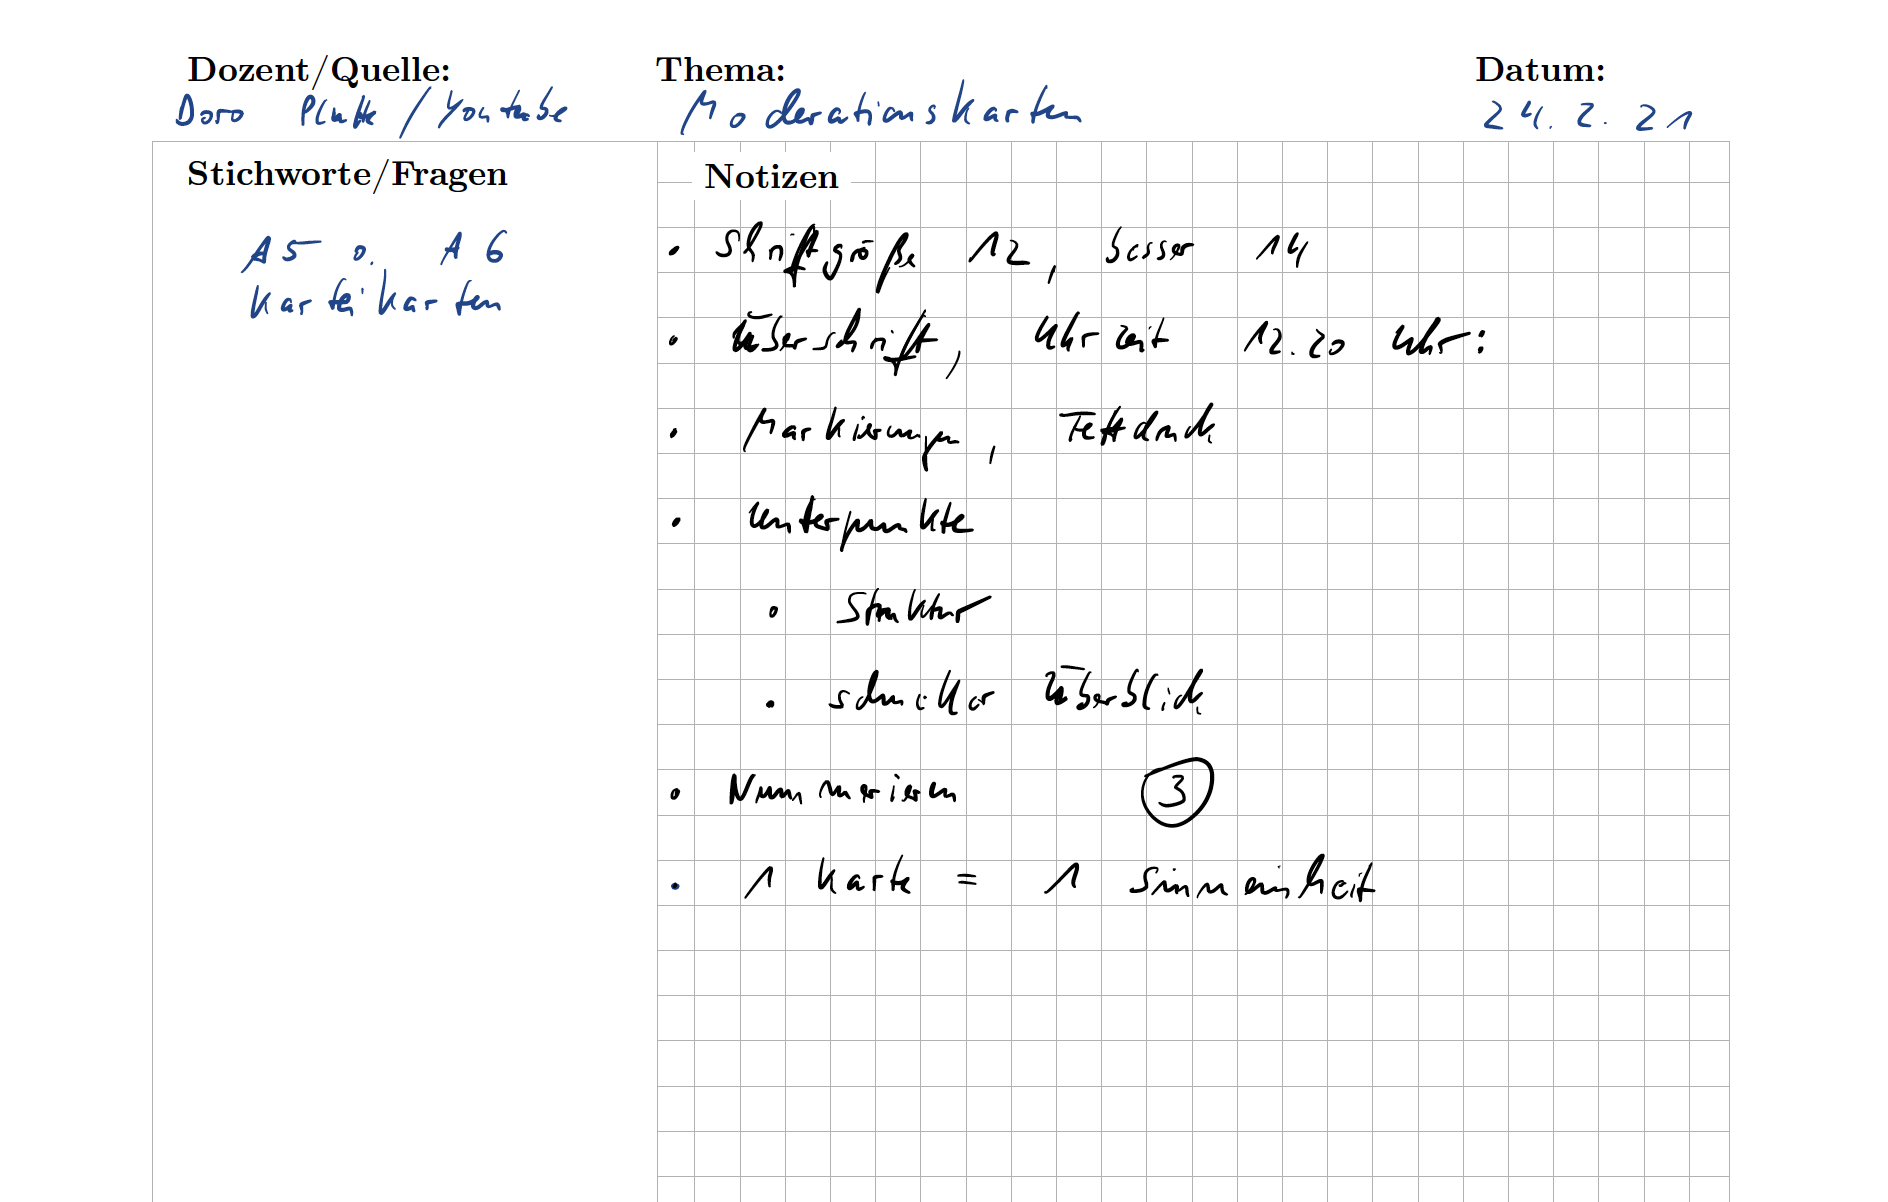 Dozent/Quelle: Thema: Datum:
Doro Plutte / Youtube Moderationskarten 24.2.21
Stichworte/Fragen
A5 o. A6
Karteikarten
Notizen
• Shriftgröße 12, besser 14
• Überschrift, Uhrzeit 12.20 Uhr:
• Markierungen, Fettdruck
• Unterpunkte
• Struktur
• schneller Überblick
• Nummerieren 3
• 1 Karte = 1 Sinneinheit